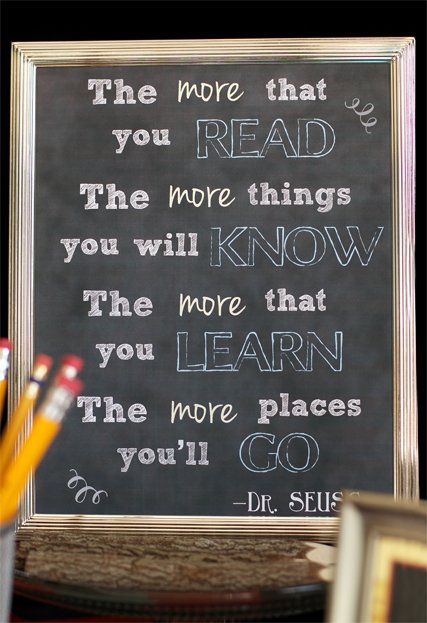 The more that
you READ
The more things
you will KNOW
The more that
you LEARN
The more places
you'll GO
—DR. SEUSS